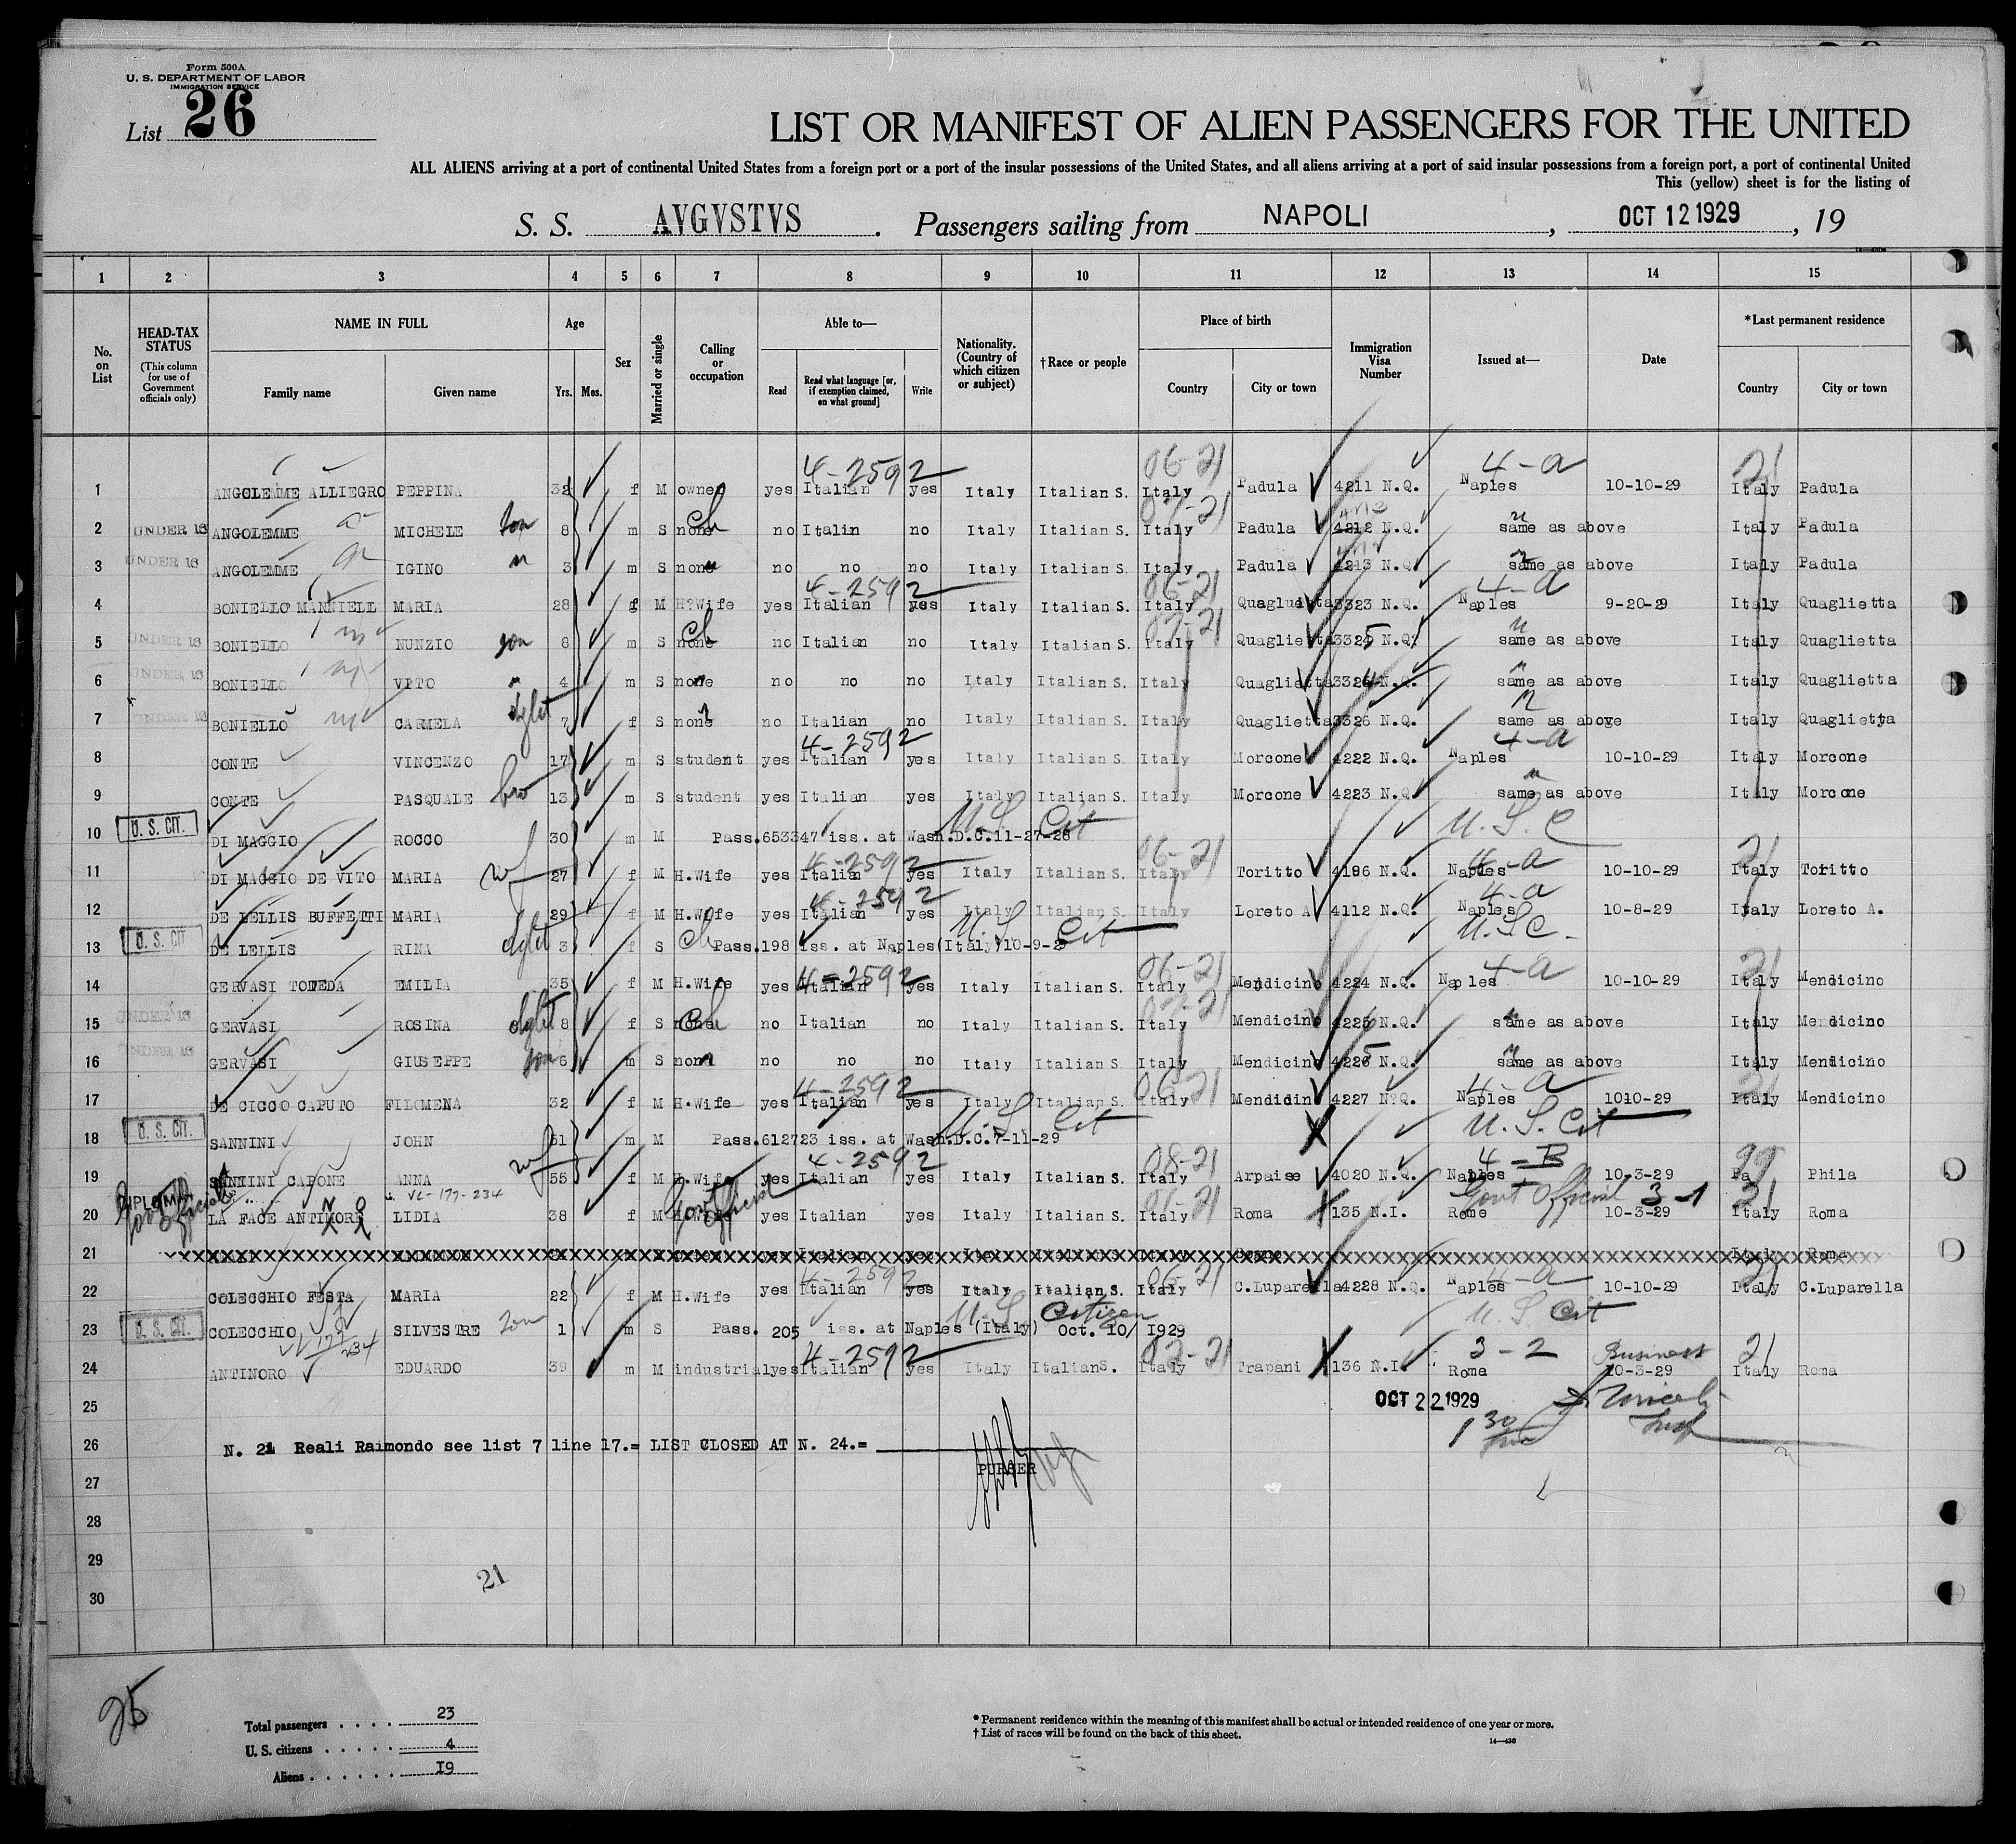 Form 500A
U. S. DEPARTMENT OF LABOR
IMMIGRATION SERVICE
List 26
LIST OR MANIFEST OF ALIEN PASSENGERS FOR THE UNITED
ALL ALIENS arriving at a port of continental United States from a foreign port or a port of the insular possessions of the United States, and all aliens arriving at a port of said insular possessions from a foreign port, a port of continental United
This (yellow) sheet is for the listing of
S. S. AVGVSTVS . Passengers sailing from NAPOLI , OCT 12 1929 , 19
1 2 3 4 5 6 7 8 9 10 11 12 13 14 15
No. on List
HEAD-TAX STATUS (This column for use of Government officials only)
NAME IN FULL Family name Given name
Age Yrs. Mos.
Sex
Married or single
Calling or occupation
Able to— Read Read what language [or, if exemption claimed, on what ground] Write
Nationality. (Country of which citizen or subject)
†Race or people
Place of birth Country City or town
Immigration Visa Number
Issued at—
Date
*Last permanent residence Country City or town
4-2592 06-21 4-a 21
1 ANGOLEMME ALLIEGRO PEPPINA 32 f M owner yes Italian yes Italy Italian S. Italy Padula 4211 N.Q. Naples 10-10-29 Italy Padula
07-21
2 UNDER 16 ANGOLEMME MICHELE son 8 m S none ch no Italin no Italy Italian S. Italy Padula 4212 N.Q. same as above Italy Padula
3 UNDER 16 ANGOLEMME IGINO " 3 m S none no no no Italy Italian S. Italy Padula 4213 N.Q. same as above Italy Padula
4-2592 06-21 4-a
4 BONIELLO MANNIELL MARIA 28 f M H.Wife yes Italian yes Italy Italian S. Italy Quaglietta 3323 N.Q. Naples 9-20-29 Italy Quaglietta
07-21
5 UNDER 16 BONIELLO NUNZIO son 8 m S none ch no Italian no Italy Italian S. Italy Quaglietta 3324 5 N.Q. same as above Italy Quaglietta
6 UNDER 16 BONIELLO VITO " 4 m S none no no no Italy Italian S. Italy Quaglietta 332 4 N.Q. same as above Italy Quaglietta
7 UNDER 16 BONIELLO CARMELA dght 7 f S none no Italian no Italy Italian S. Italy Quaglietta 3326 N.Q. same as above Italy Quaglietta
4-2592 4-a
8 CONTE VINCENZO 17 m S student yes Italian yes Italy Italian S. Italy Morcone 4222 N.Q. Naples 10-10-29 Italy Morcone
9 CONTE PASQUALE bro 13 m S student yes Italian yes Italy Italian S. Italy Morcone 4223 N.Q. same as above Italy Morcone
U. S. Cit U. S. C
10 U. S. CIT. DI MAGGIO ROCCO 30 m M Pass.653347 iss. at Wash.D.C.11-27-28
4-2592 06-21 4-a 21
11 DI MAGGIO DE VITO MARIA wf 27 f M H.Wife yes Italian yes Italy Italian S. Italy Toritto 4196 N.Q. Naples 10-10-29 Italy Toritto
4-2592 4-a
12 DE LELLIS BUFFETTI MARIA 29 f M H.Wife yes Italian yes Italy Italian S. Italy Loreto A 4112 N.Q. Naples 10-8-29 Italy Loreto A.
U. S Cit U.S.C.
13 U. S. CIT DE LELLIS RINA dght 3 f S ch Pass.198 iss. at Naples(Italy)10-9-29
4-2592 06-21 4-a 21
14 GERVASI TOTEDA EMILIA 35 f M H.Wife yes Italian yes Italy Italian S. Italy Mendicino 4224 N.Q. Naples 10-10-29 Italy Mendicino
07-21
15 UNDER 16 GERVASI ROSINA dght 8 f S none ch no Italian no Italy Italian S. Italy Mendicino 4225 N.Q. same as above Italy Mendicino
16 UNDER 16 GERVASI GIUSEPPE son 6 m S none no no no Italy Italian S. Italy Mendicino 4226 5 N.Q. same as above Italy Mendicino
4-2592 06-21 4-a 21
17 DE CICCO CAPUTO FILOMENA 32 f M H.Wife yes Italian yes Italy Italian S. Italy Mendidin 4227 N.Q. Naples 1010-29 Italy Mendicino
U. S. Cit U. S. Cit
18 U. S. CIT. SANNINI JOHN 61 m M Pass.612723 iss. at Wash.D.C.7-11-29
4-2592 08-21 4-B 99
19 SANNINI CAPONE ANNA wf 55 f M H.Wife yes Italian yes Italy Italian S. Italy Arpaise 4020 N.Q. Naples 10-3-29 Pa Phila
DIPLOMAT Govt Official VL-177-234 Govt Official 01-21 Govt Official 3-1 21
20 LA FACE ANTINORI LIDIA 38 f M yes Italian yes Italy Italian S. Italy Roma 135 N.I. Rome 10-3-29 Italy Roma
21 Italian Italy Roma
4-2592 06-21 4-a 21
22 COLECCHIO FESTA MARIA 22 f M H.Wife yes Italian yes Italy Italian S. Italy C.Luparella 4228 N.Q. Naples 10-10-29 Italy C.Luparella
U. S Citizen U. S. Cit
23 U. S. CIT. COLECCHIO SILVESTRE son 1 m S Pass. 205 iss. at Naples (Italy) Oct. 10/ 1929
177-234 4-2592 02-21 3-2 Business 21
24 ANTINORO EDUARDO 39 m M industrial yes Italian yes Italy Italian S. Italy Trapani 136 N.I. Rome 10-3-29 Italy Roma
25 OCT 22 1929
1 30
26 N. 21 Reali Raimondo see list 7 line 17.= LIST CLOSED AT N. 24.=
PURSER
27
28
29
21
30
25
Total passengers . . . . 23
U. S. citizens . . . . . 4
Aliens . . . . . . I9
* Permanent residence within the meaning of this manifest shall be actual or intended residence of one year or more.
† List of races will be found on the back of this sheet.
14—430